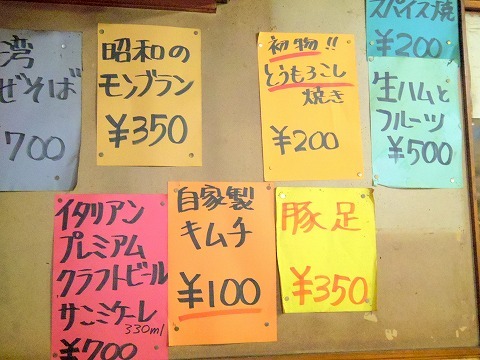 湾
ぜそば
700
昭和の
モンブラン
¥350
初物!!
とうもろこし
焼き
¥200
スパイス焼
¥200
生ハムと
フルーツ
¥500
イタリアン
プレミアム
クラフトビール
サンミケーレ
330ml
¥700
自家製
キムチ
¥100
豚足
¥350